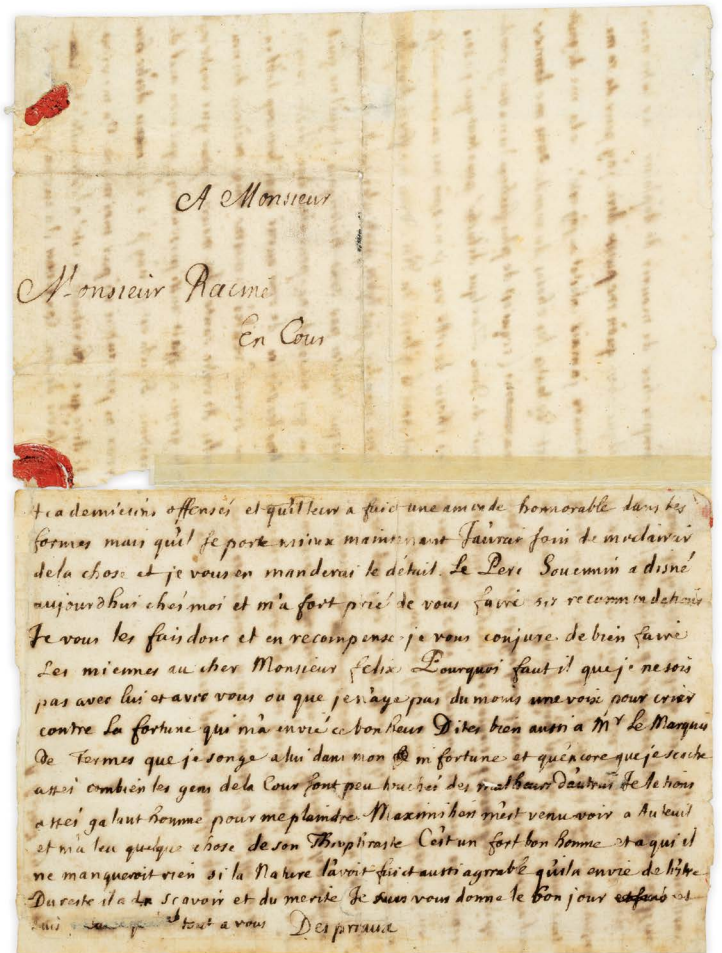 A Monsieur
Monsieur Racine
En Cour
Academiciens offensés et qu'il leur a faict une amende honnorable dans les
formes mais qu'il se porte mieux maintenant J'aurai soin de m'éclaircir
de la chose et je vous en manderai le détail. Le Pere Bouhours a disné
aujourdhui chés moi et m'a fort prié de vous faire ses recommendations
Je vous les fais donc et en recompense je vous conjure de bien faire
Les miennes au cher Monsieur felix Pourquoi faut il que je ne sois
pas avec lui et avec vous ou que je n'aye pas du moins une voix pour crier
contre La fortune qui m'a envié ce bonheur Dites bien aussi a Mr Le Marquis
De Termes que je songe a lui dans mon infortune et qu'encore que je sçache
assés combien les gens de la Cour sont peu touchés des malheurs d'autrui Je le tiens
assés galant homme pour me plaindre. Maximilien m'est venu voir a Auteuil
et m'a leu quelque chose de son Theophraste C'est un fort bon homme et a qui il
ne manqueroit rien si la Nature l'avoit faict aussi agreable qu'il a envie de l'estre
Du reste il a du scavoir et du merite Je vous donne le bon jour et
suis tout a vous Despreaux